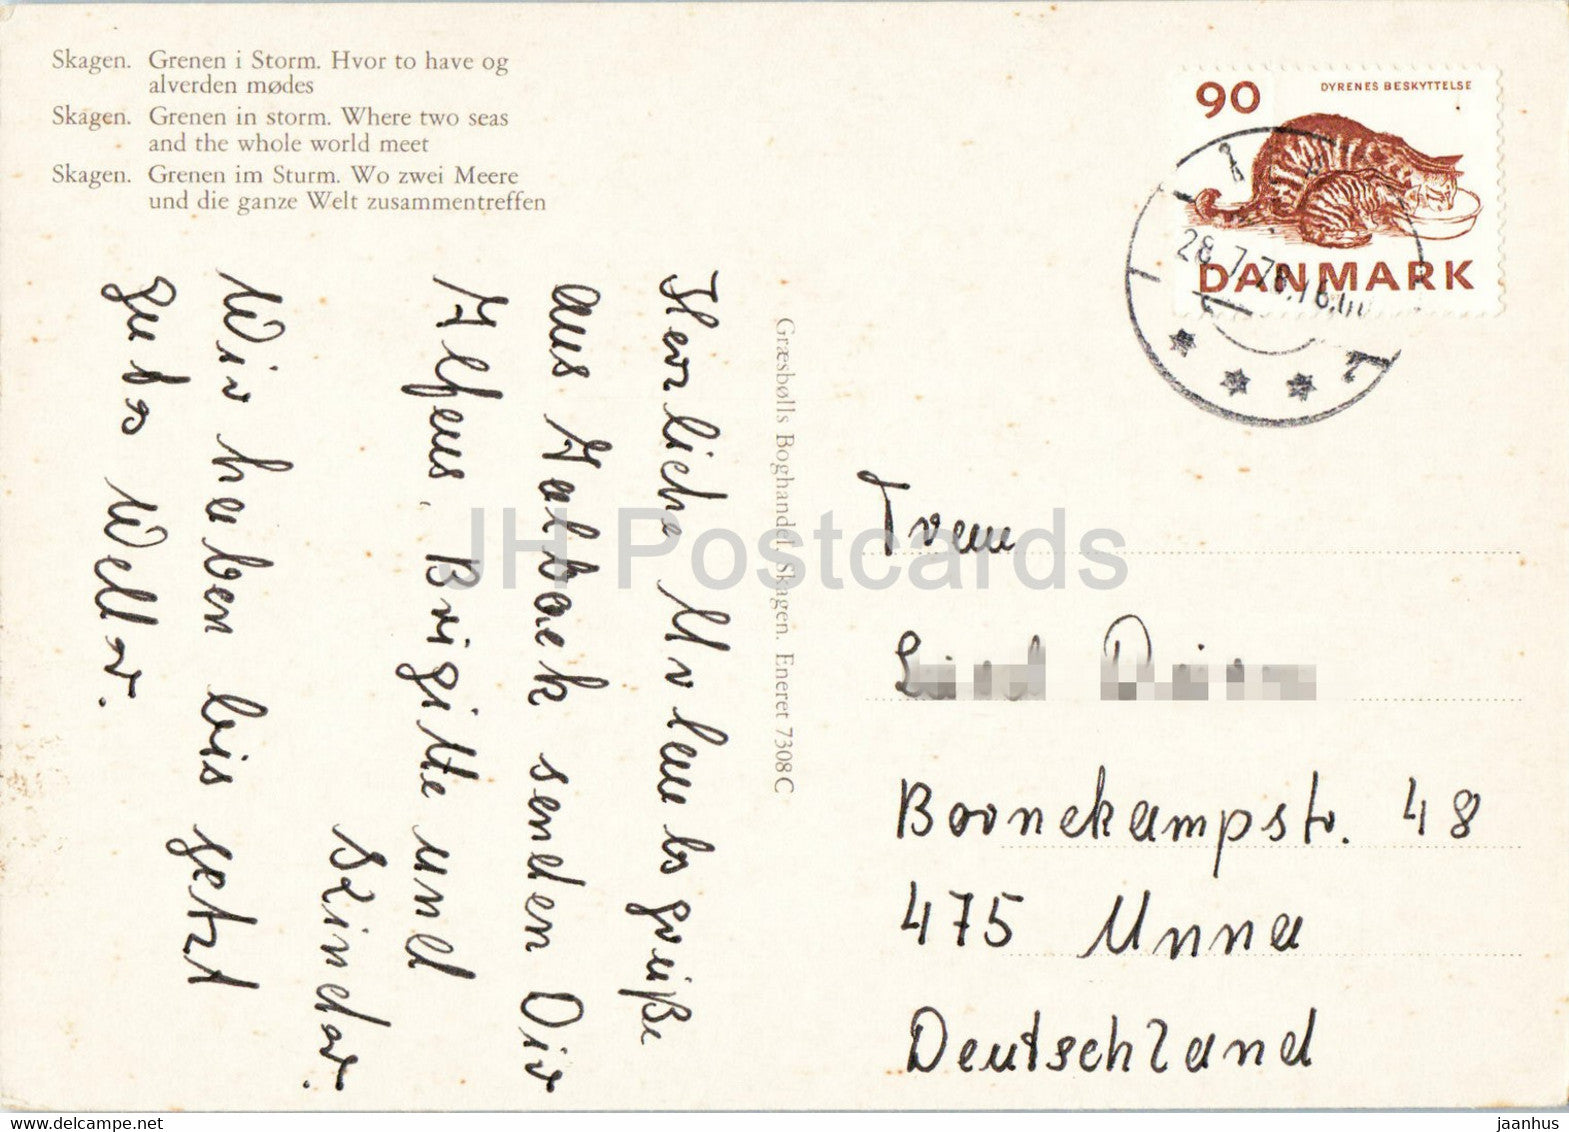 Skagen. Grenen i Storm. Hvor to have og
alverden mødes
Skagen. Grenen in storm. Where two seas
and the whole world meet
Skagen. Grenen im Sturm. Wo zwei Meere
und die ganze Welt zusammentreffen
90
DYRENES BESKYTTELSE
DANMARK
28.7.76.16.00
Herzliche Urlaubsgrüße
aus Aalbaek senden Dir
Alfons, Brigitte und
Kinder.
Wir haben bis jetzt
gutes Wetter.
Græsbølls Boghandel, Skagen. Eneret 7308 C
JH Postcards
48
475 Unna
Deutschland
www.delcampe.net
jaanhus